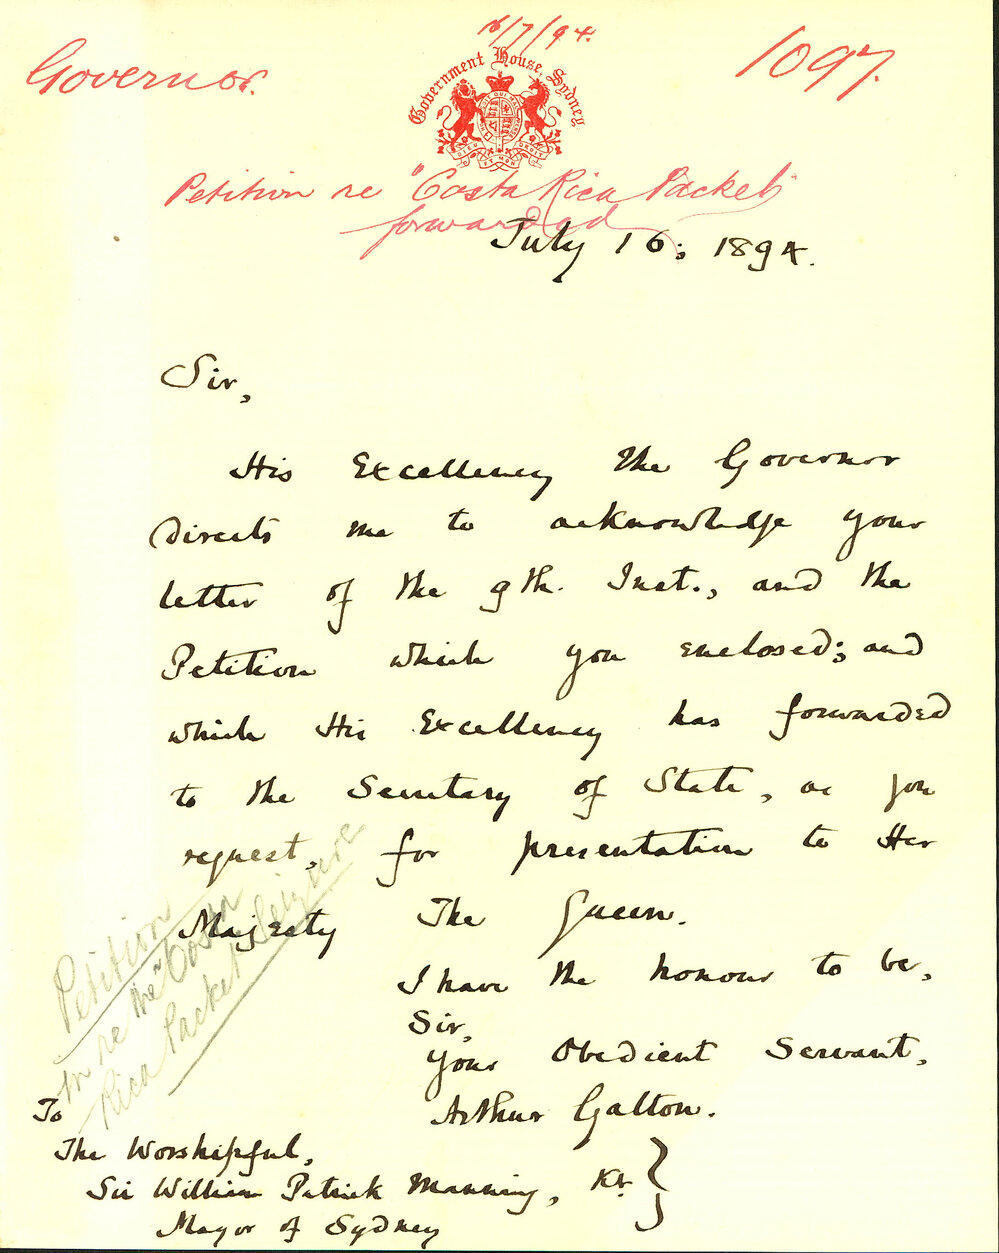 16/7/94.
Governor.
1097.
Government House, Sydney.
DIEU ET MON DROIT
Petition re "Costa Rica Packet"
forwarded
July 16; 1894.
Sir,
His Excellency The Governor
Directs me to acknowledge your
letter of the 9th. Inst., and the
Petition which you enclosed; and
which His Excellency has forwarded
to the Secretary of State, as you
request, for presentation to Her
Majesty The Queen.
I have the honour to be,
Sir,
Your Obedient Servant,
Arthur Galton.
Petition
In re the "Costa
Rica Packet" Seizure
To
The Worshipful,
Sir William Patrick Manning, Kt. }
Mayor of Sydney